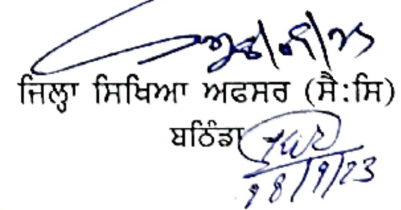 ਜਿਲ੍ਹਾ ਸਿਖਿਆ ਅਫਸਰ (ਸੈ:ਸਿ)
ਬਠਿੰਡਾ
18/9/23